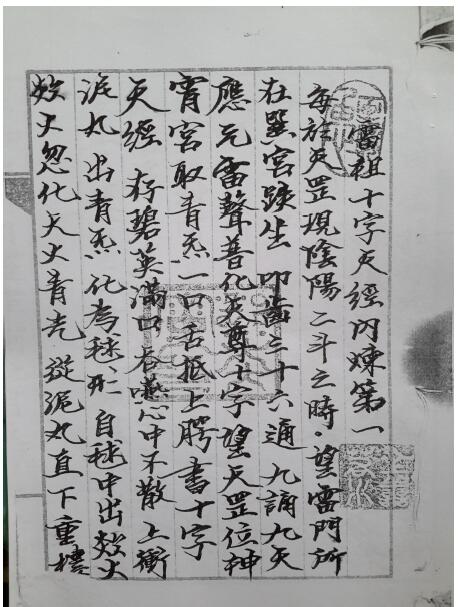 雷祖十字天經內煉第一
每於天罡現陰陽二斗之時．望雷門所
在巽宮趺坐 叩齒三十六通 九誦九天
應元雷聲普化天尊十字 望天罡位神
霄宮取青炁一口 舌抵上腭 書十字
天經 存碧英滿口 吞嚥心中不散 上衝
泥丸 出青炁化為毬形 自毬中出燄火
燄火忽化天火青光 從泥丸直下重樓